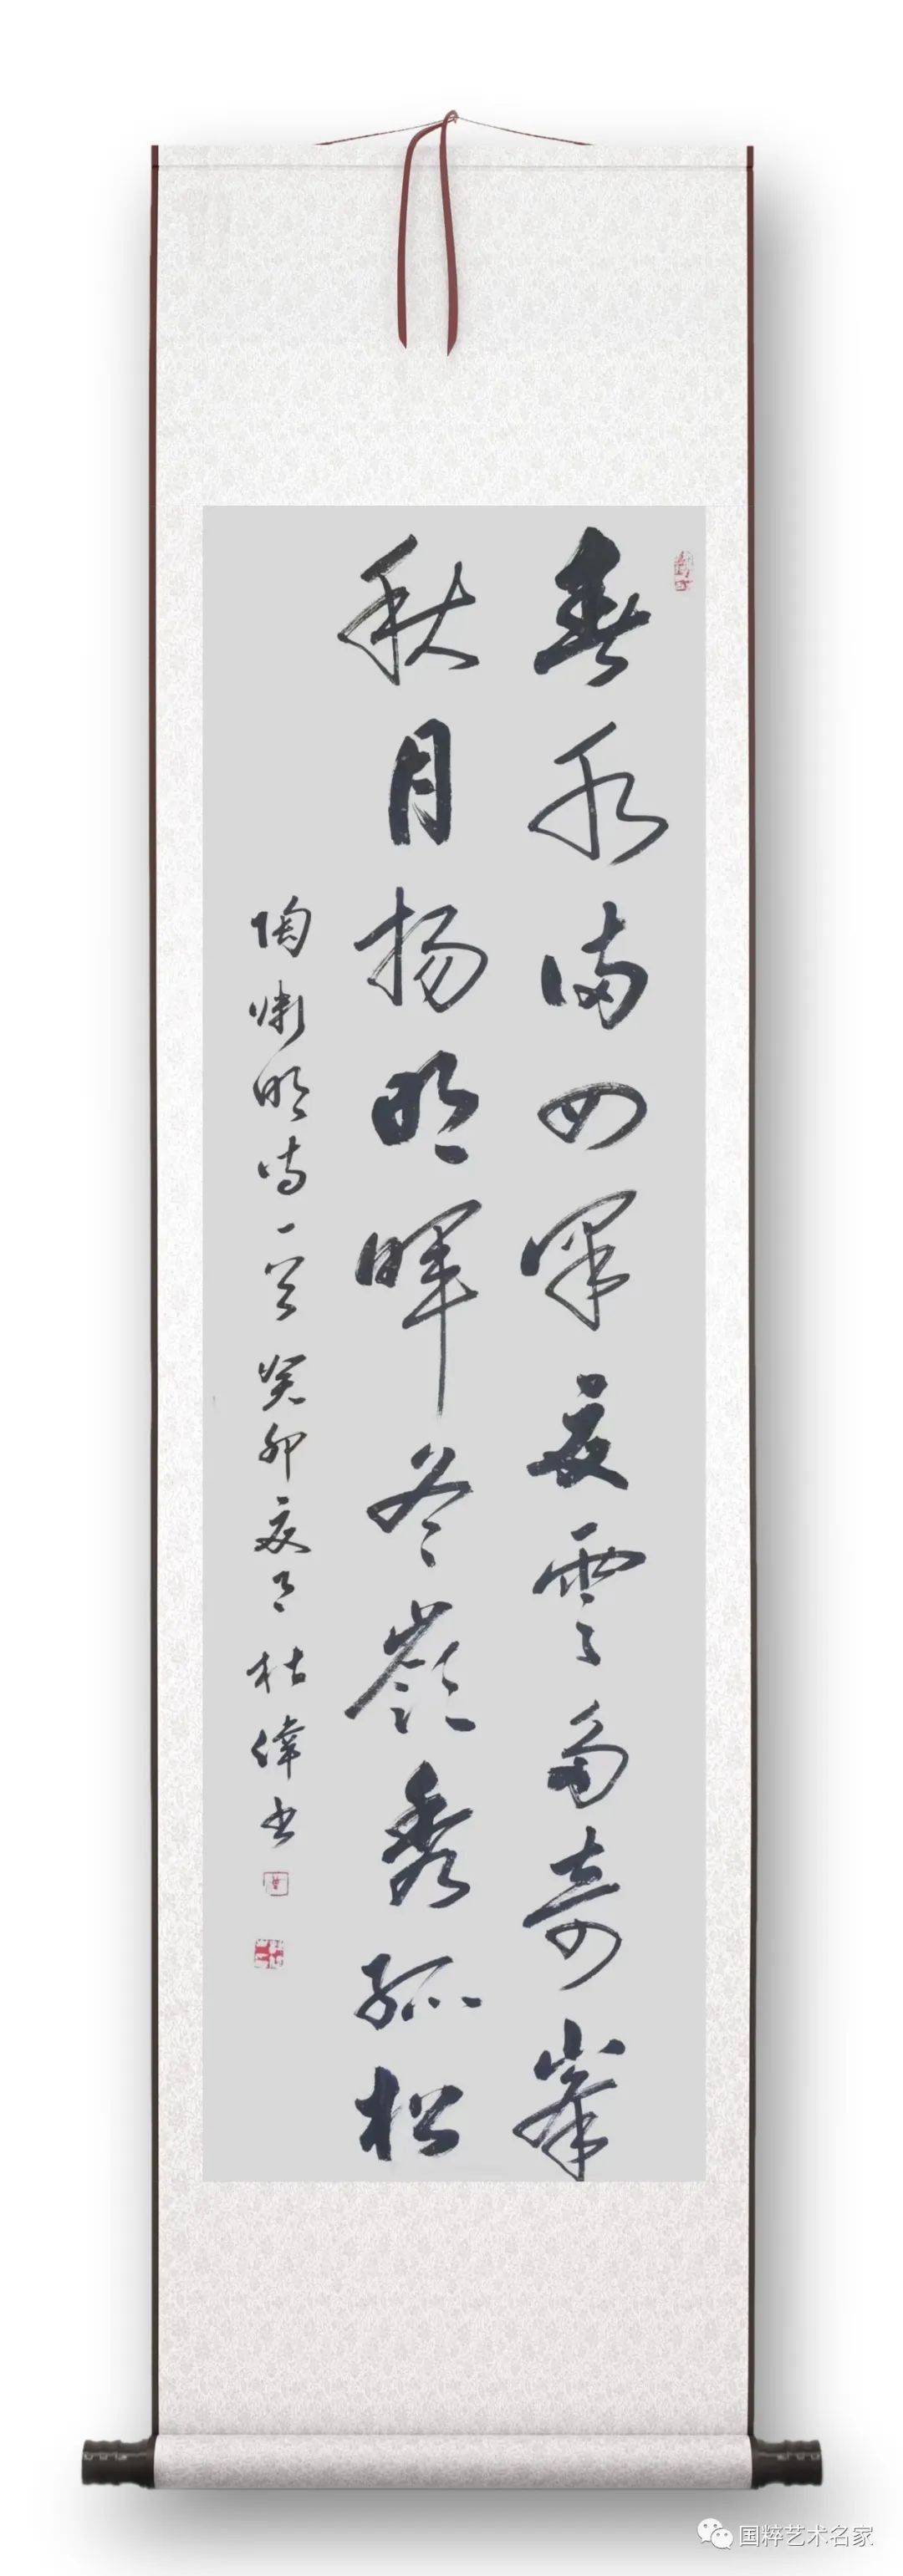 春水满四泽夏云多奇峰
秋月扬明晖冬岭秀孤松
陶渊明诗一首 癸卯夏月 杜伟书
国粹艺术名家